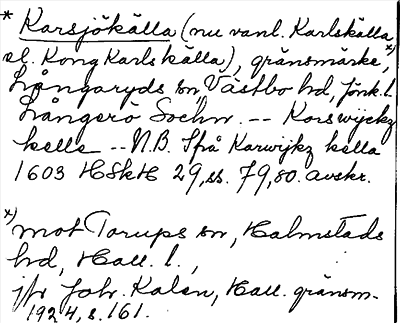 * Karsjökälla (nu vanl. Karlskälla
el. Kong Karls källa), gränsmärke, x)
Långaryds sn, Västbo hd, Jönk. l.
Långerö Sochn. -- Korswijckz
kelle -- N.B. Ifrå Karwijkz kella
1603 HSkH 29, ss. 79, 80. avskr.
x) mot Torups sn, Halmstads
hd, Hall. l.,
jfr Joh. Kalén, Hall. gränsm.
1924, s. 161.